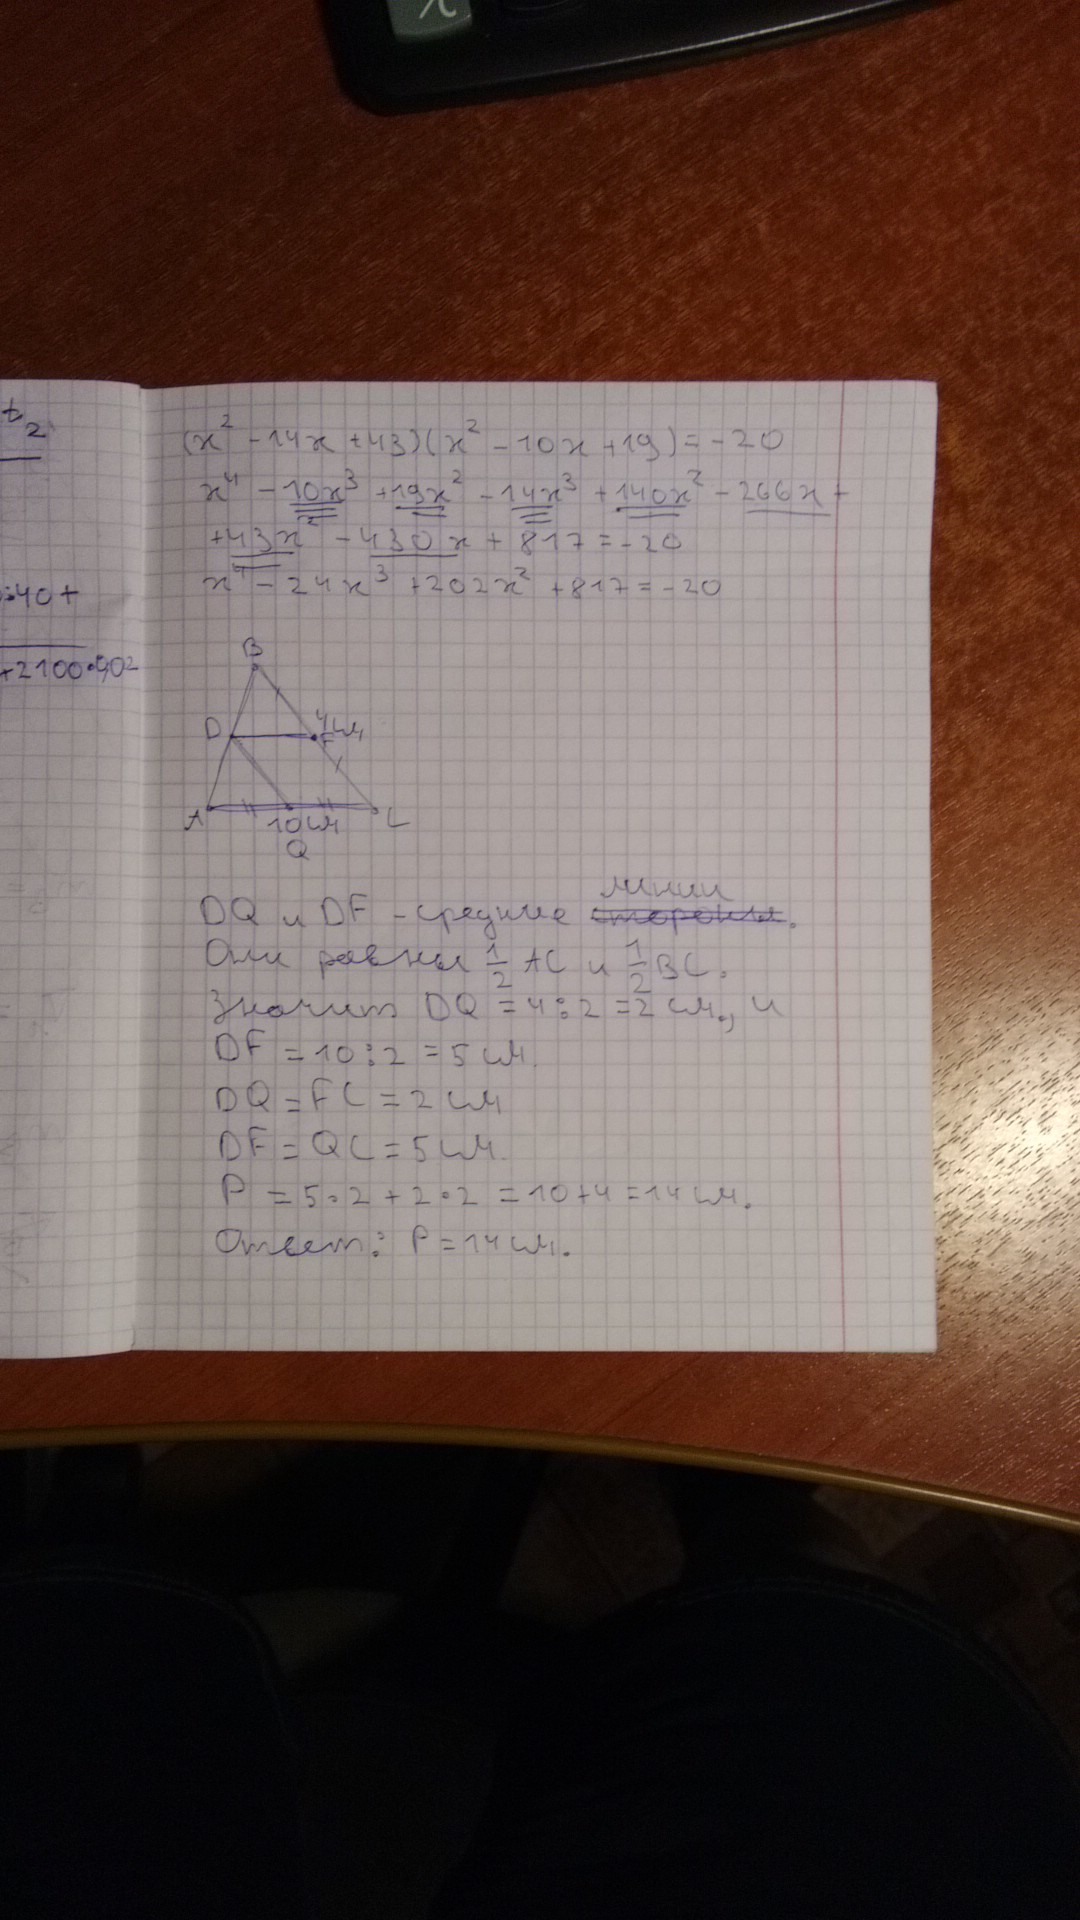 t₂
:40+
+2100·90²
(x² - 14x + 43)(x² - 10x + 19) = -20
x⁴ - 10x³ + 19x² - 14x³ + 140x² - 266x +
+ 43x² - 430x + 817 = -20
x⁴ - 24x³ + 202x² + 817 = -20
B
D
4 см
F
A
10 см
C
Q
DQ и DF - средние линии.
Они равны 1/2 AC и 1/2 BC.
Значит DQ = 4:2 = 2 см, и
DF = 10:2 = 5 см.
DQ = FC = 2 см
DF = QC = 5 см.
P = 5·2 + 2·2 = 10+4 = 14 см.
Ответ: P = 14 см.